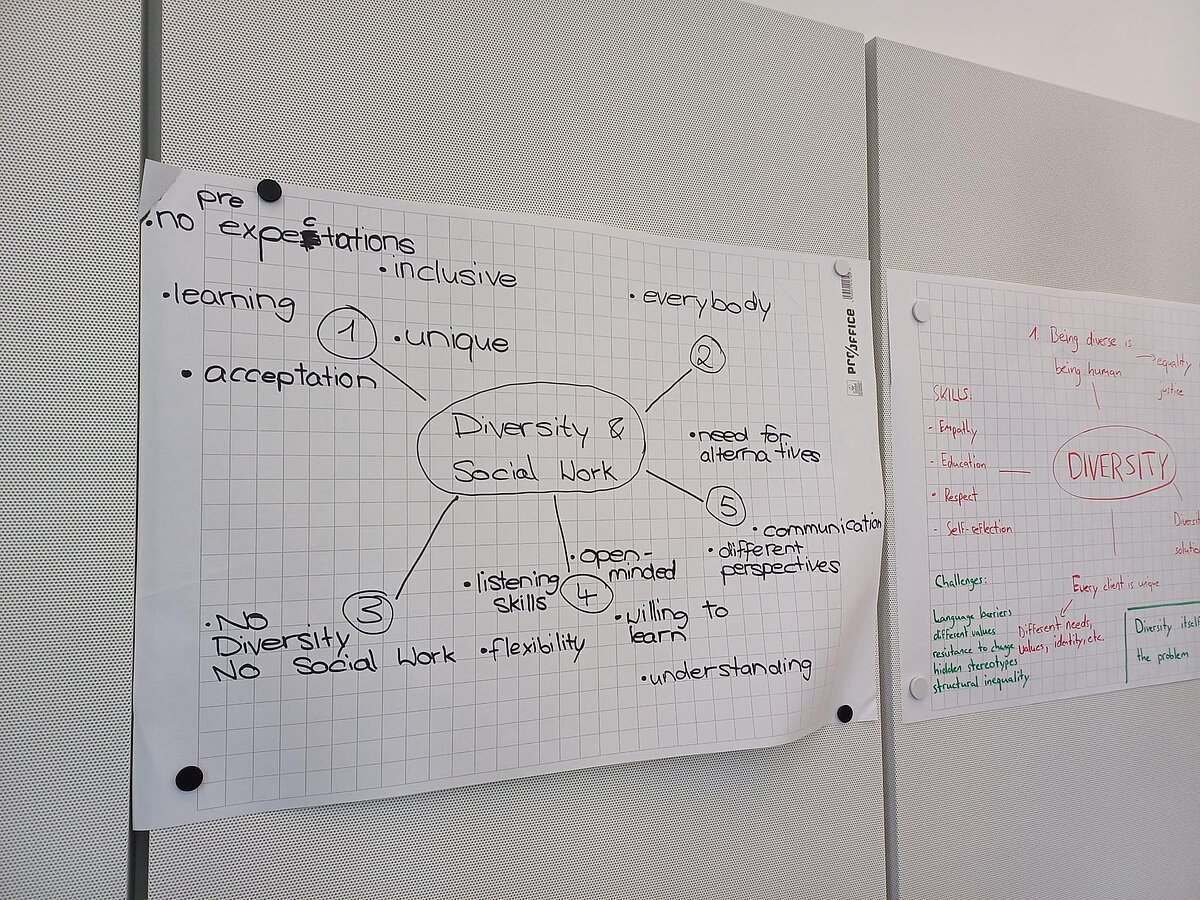 pre
•no expectations
•inclusive
•learning
1
•unique
• acceptation
•everybody
2
Diversity &
Social Work
•need for
alternatives
5
•communication
•different
perspectives
•open-
minded
4
•listening
skills
•willing to
learn
•flexibility
•understanding
3
•NO
Diversity
NO Social Work
PRO/OFFICE
1. Being diverse is
being human
equality
justice
SKILLS:
- Empathy
- Education
• Respect
- Self-reflection
DIVERSITY
Challenges:
Language barriers
different values
resistance to change
hidden stereotypes
structural inequality
Every client is unique
Different needs,
values, identity, etc.
Diversity itself
the problem